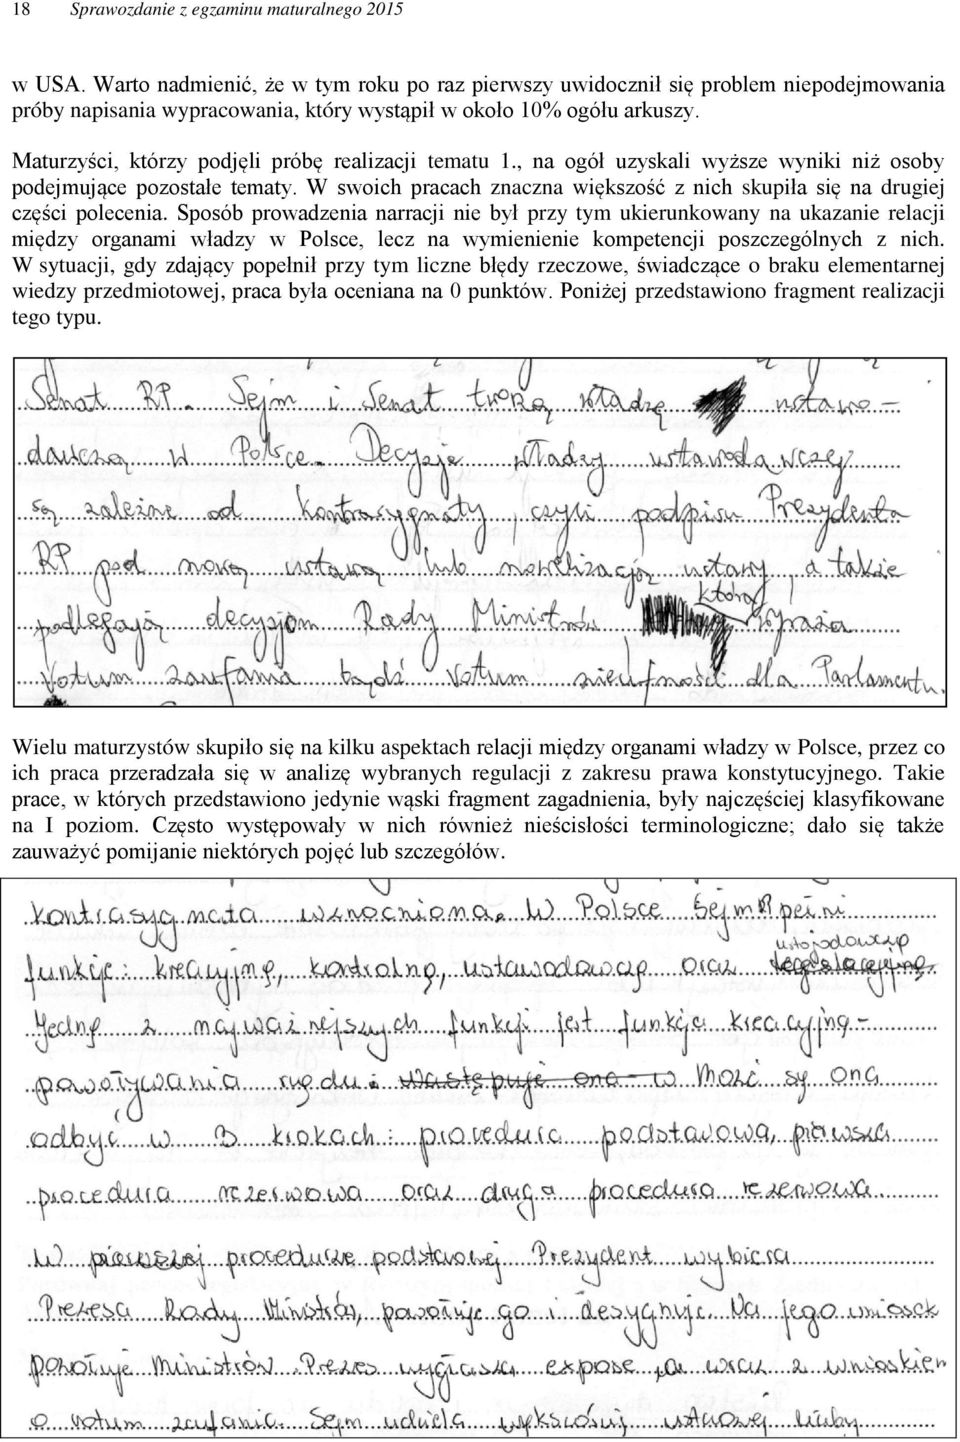 18 Sprawozdanie z egzaminu maturalnego 2015
w USA. Warto nadmienić, że w tym roku po raz pierwszy uwidocznił się problem niepodejmowania
próby napisania wypracowania, który wystąpił w około 10% ogółu arkuszy.
Maturzyści, którzy podjęli próbę realizacji tematu 1., na ogół uzyskali wyższe wyniki niż osoby
podejmujące pozostałe tematy. W swoich pracach znaczna większość z nich skupiła się na drugiej
części polecenia. Sposób prowadzenia narracji nie był przy tym ukierunkowany na ukazanie relacji
między organami władzy w Polsce, lecz na wymienienie kompetencji poszczególnych z nich.
W sytuacji, gdy zdający popełnił przy tym liczne błędy rzeczowe, świadczące o braku elementarnej
wiedzy przedmiotowej, praca była oceniana na 0 punktów. Poniżej przedstawiono fragment realizacji
tego typu.
Senat RP. Sejm i Senat tworzą władzę ustawo-
dawczą w Polsce. Decyzje władzy ustawodawczej
są zależne od kontrasygnaty, czyli podpisu Prezydenta
RP pod nową ustawą lub nowelizacją ustawy, a także
podlegają decyzjom Rady Ministrów która wyraża
Votum zaufania bądź Votum nieufności dla Parlamentu.
Wielu maturzystów skupiło się na kilku aspektach relacji między organami władzy w Polsce, przez co
ich praca przeradzała się w analizę wybranych regulacji z zakresu prawa konstytucyjnego. Takie
prace, w których przedstawiono jedynie wąski fragment zagadnienia, były najczęściej klasyfikowane
na I poziom. Często występowały w nich również nieścisłości terminologiczne; dało się także
zauważyć pomijanie niektórych pojęć lub szczegółów.
kontrasygnata wzmocniona. W Polsce Sejm pełni
funkcje: kreacyjną, kontrolną, ustawodawczą oraz ustrojodawczą legislacyjną.
Jedną z najważniejszych funkcji jest funkcja kreacyjna-
powoływania rządu. wastępuje ona w Może się ona
odbyć w 3 krokach: procedura podstawowa, pierwsza
procedura rezerwowa oraz druga procedura rezerwowa.
W pierwszej procedurze podstawowej Prezydent wybiera
Prezesa Rady Ministrów, powołuje go i desygnuje. Na jego wniosek
powołuje Ministrów. Prezes wygłasza expose wraz z wnioskiem
o votum zaufania. Sejm udziela większością ustawowej liczby